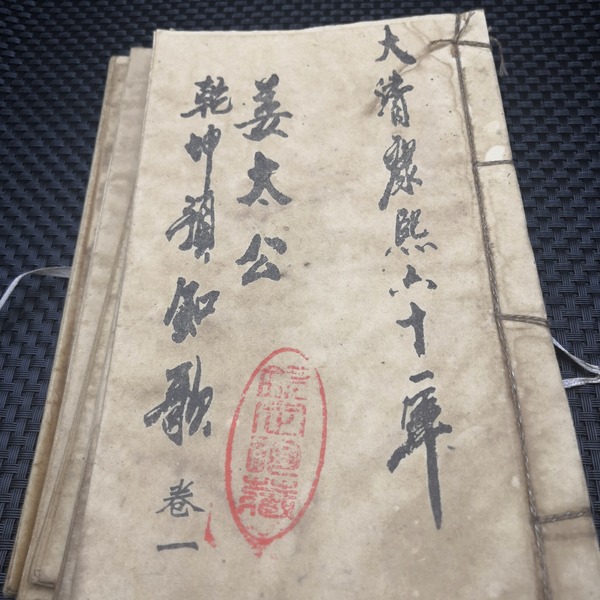 大清康熙六十一年
姜太公
乾坤預知歌 卷一